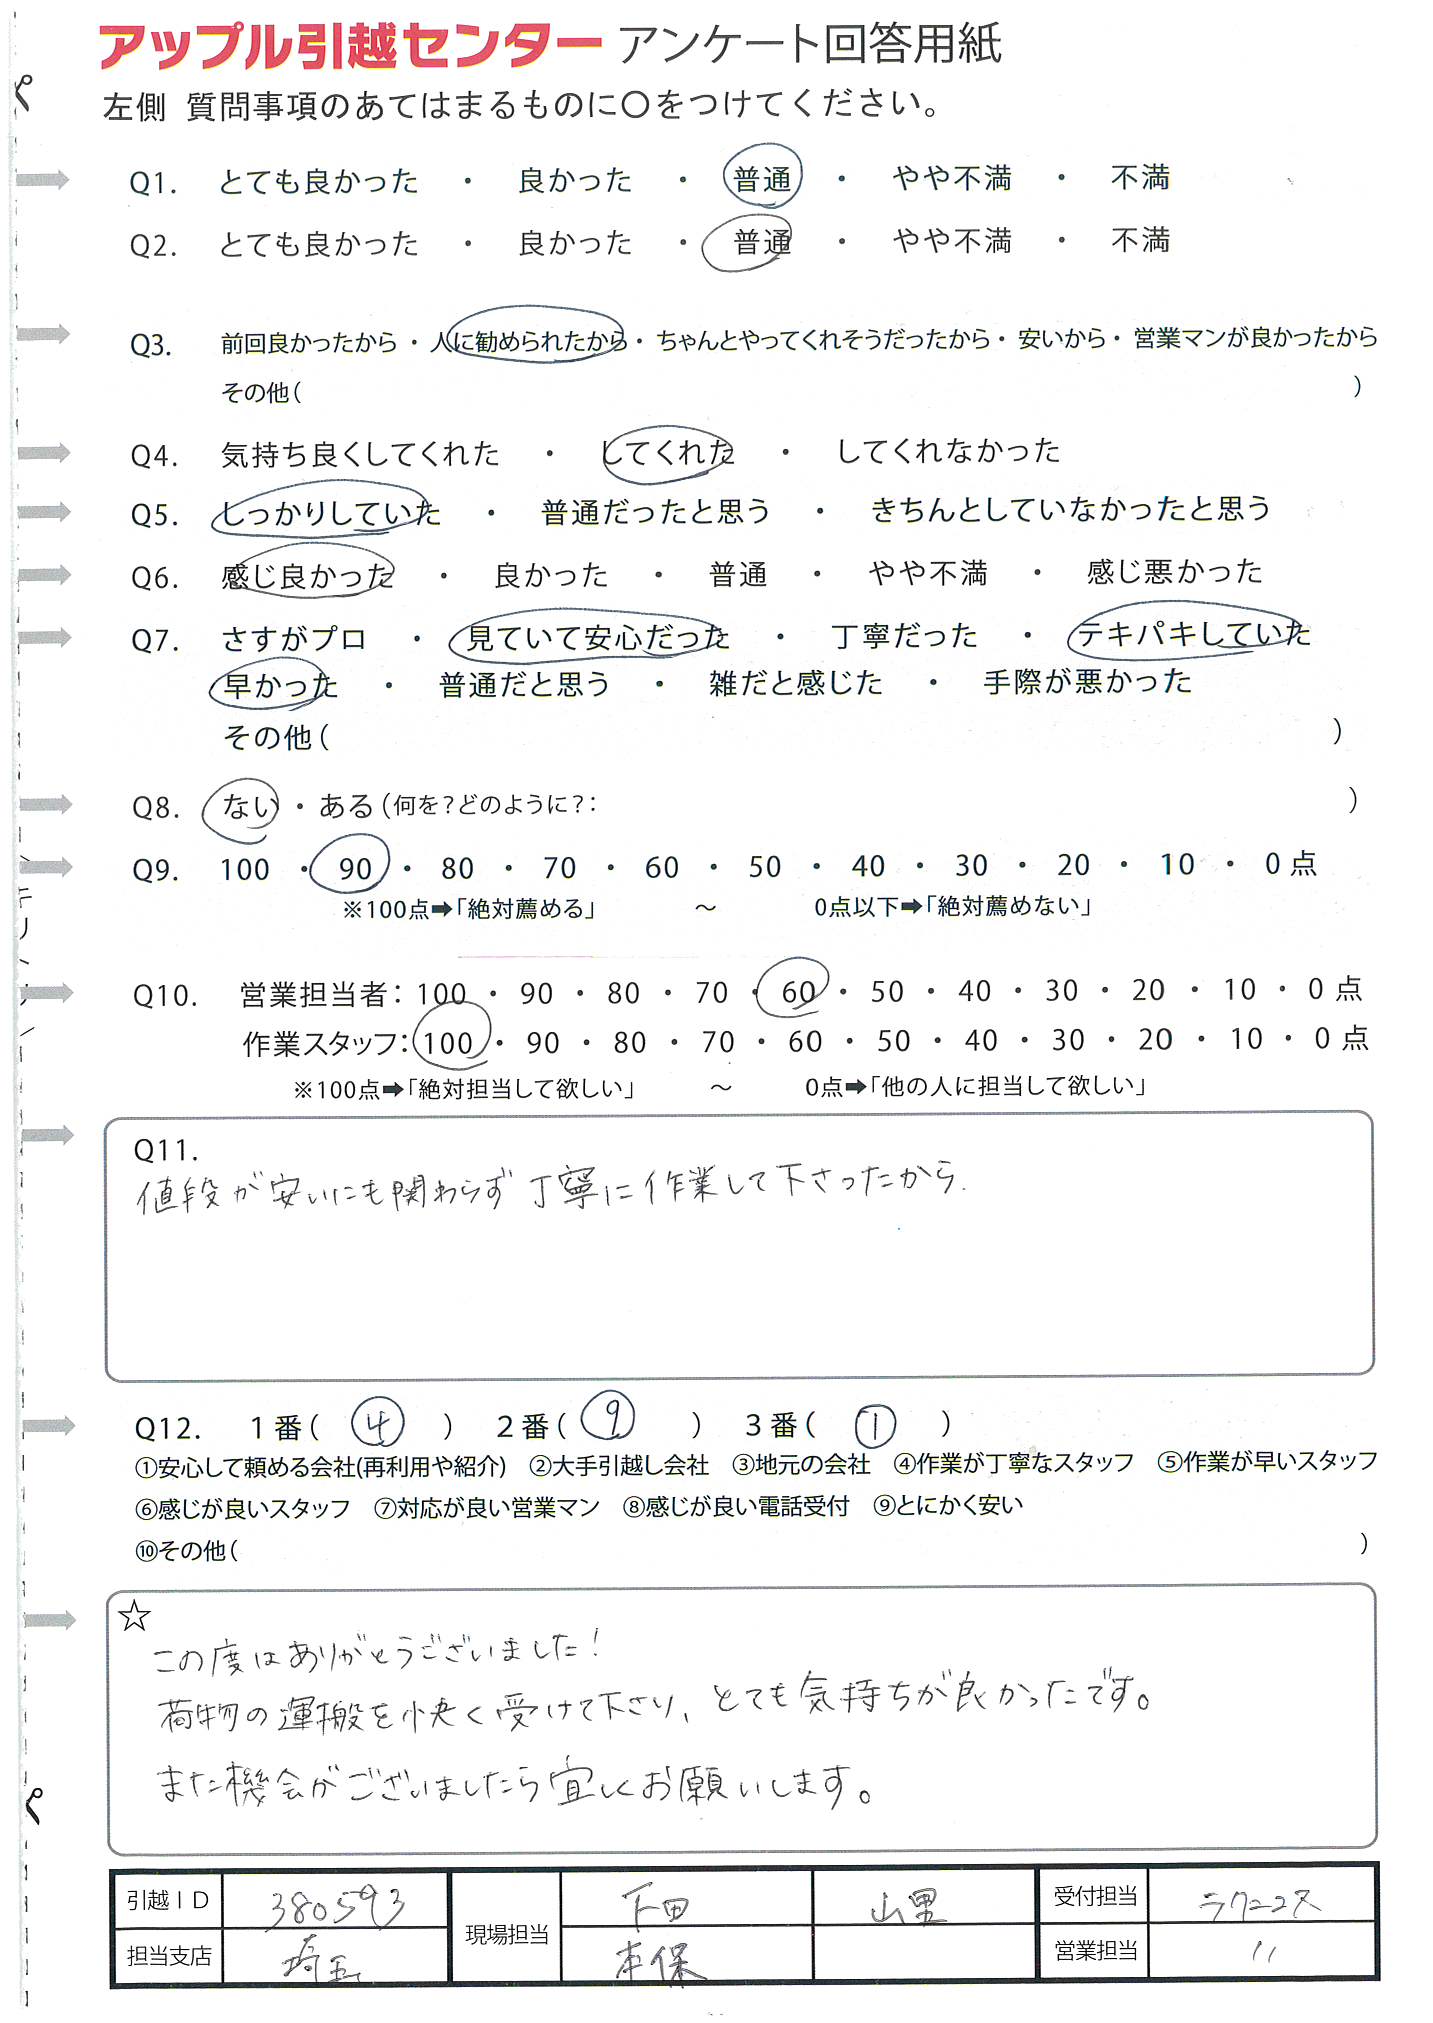 アップル引越センター アンケート回答用紙
左側 質問事項のあてはまるものに〇をつけてください。
Q1. とても良かった ・ 良かった ・ 普通 ・ やや不満 ・ 不満
Q2. とても良かった ・ 良かった ・ 普通 ・ やや不満 ・ 不満
Q3. 前回良かったから ・ 人に勧められたから ・ ちゃんとやってくれそうだったから ・ 安いから ・ 営業マンが良かったから
その他( )
Q4. 気持ち良くしてくれた ・ してくれた ・ してくれなかった
Q5. しっかりしていた ・ 普通だったと思う ・ きちんとしていなかったと思う
Q6. 感じ良かった ・ 良かった ・ 普通 ・ やや不満 ・ 感じ悪かった
Q7. さすがプロ ・ 見ていて安心だった ・ 丁寧だった ・ テキパキしていた
早かった ・ 普通だと思う ・ 雑だと感じた ・ 手際が悪かった
その他( )
Q8. ない ・ ある (何を?どのように?: )
Q9. 100 ・ 90 ・ 80 ・ 70 ・ 60 ・ 50 ・ 40 ・ 30 ・ 20 ・ 10 ・ 0 点
※100点➡「絶対薦める」 ～ 0点以下➡「絶対薦めない」
キリトリ
Q10. 営業担当者: 100 ・ 90 ・ 80 ・ 70 ・ 60 ・ 50 ・ 40 ・ 30 ・ 20 ・ 10 ・ 0 点
作業スタッフ: 100 ・ 90 ・ 80 ・ 70 ・ 60 ・ 50 ・ 40 ・ 30 ・ 20 ・ 10 ・ 0 点
※100点➡「絶対担当して欲しい」 ～ 0点➡「他の人に担当して欲しい」
Q11.
値段が安いにも関わらず丁寧に作業して下さったから.
Q12. 1番( ④ ) 2番( ⑨ ) 3番( ① )
①安心して頼める会社(再利用や紹介) ②大手引越し会社 ③地元の会社 ④作業が丁寧なスタッフ ⑤作業が早いスタッフ
⑥感じが良いスタッフ ⑦対応が良い営業マン ⑧感じが良い電話受付 ⑨とにかく安い
⑩その他( )
☆
この度はありがとうございました!
荷物の運搬を快く受けて下さり、とても気持ちが良かったです。
また機会がございましたら宜しくお願いします。
引越ID 380593 現場担当 下田 山里 受付担当 ラクニコス
担当支店 埼玉 本保 営業担当 〃